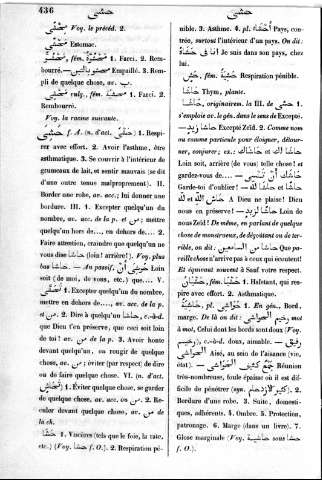 436
حشى
حشى
مَحْشًى Voy. le précéd. 2.
Estomac.
مَحْشِىّ, fém. مَحْشِيَّة 1. Farci. 2. Rem-
bourré.— Empaillé. 3. Rem-
pli de quelque chose, av. ب.
vulg., fém. 1. Farci. 2.
Rembourré.
Voy. la racine suivante.
f. A. (n. d'act. ) 1. Respi-
rer avec effort. 2. Avoir l'asthme, être
asthmatique. 3. Se couvrir à l'intérieur de
grumeaux de lait, et sentir mauvais (se dit
d'une outre tenue malproprement). II.
Border une robe, ac. acc.; lui donner une
bordure. III. 1. Excepter quelqu'un du
nombre, av. acc. de la p. et من; mettre
quelqu'un hors de..., en dehors de.... 2.
Faire attention, craindre que quelqu'un ne
vous dise حاشا (loin! arrière!). Voy. plus
bas حاشا. — Au passif, Loin
soit (de moi, de vous, etc.) que.... V.
1. Excepter quelqu'un du nombre,
mettre en dehors de...., av. acc. de la p.
et من. 2. Dire à quelqu'un حاشا, c.-à-d.
que Dieu t'en préserve, que ceci soit loin
de toi! av. من de la p. 3. Avoir honte
devant quelqu'un, ou rougir de quelque
chose, av. من; éviter (par respect) de dire
ou de faire quelque chose. VI. (n. d'act.
) 1. Éviter quelque chose, se garder
de quelque chose, av. acc. ou من. 2. Re-
culer devant quelque chose, av. من de
la ch.
1. Viscères (tels que le foie, la rate,
etc.) (Voy. f. O.). 2. Respiration pé-
nible. 3. Asthme. 4. pl. Pays, con-
trée, surtout l'intérieur d'un pays. On dit:
Je suis dans son pays, chez
lui.
, fém. Respiration pénible.
حاشا Thym, plante.
حاشا, originairem. la III. de حشى
s'emploie av. le gén. dans le sens de Excepté.
— حاشا زيد Excepté Zeïd. 2. Comme nom
ou comme particule pour éloigner, détour-
ner, conjurer; ex.: حاشاك et حاشا لك
Loin soit, arrière (de vous! telle chose! et
gardez-vous de.... —
Garde-toi d'oublier! — et
A Dieu ne plaise! Dieu
nous en préserve! — Loin de
nous Zeïd! De même, en parlant de quelque
chose de monstrueux, de dégoûtant ou de ter-
rible, on dit: حاشا من السامعين Que pa-
reille chose n'arrive pas à ceux qui écoutent!
Et équivaut souvent à Sauf votre respect.
, fém. 1. Haletant, qui res-
pire avec effort. 2. Asthmatique.
, pl. 1. En gén., Bord,
marge. De là on dit: mot
à mot, Celui dont les bords sont doux (Voy.
), c.-à-d. doux, aimable. —
Aisé, au sein de l'aisance (vie,
état). — Réunion
très-nombreuse, foule épaisse où il est dif-
ficile de pénétrer (syn. ). 2.
Bordure d'une robe. 3. Suite, domesti-
ques, adhérents. 4. Ombre. 5. Protection,
patronage. 6. Marge (dans un livre). 7.
Glose marginale (Voy. حاشية sous
f. O.).